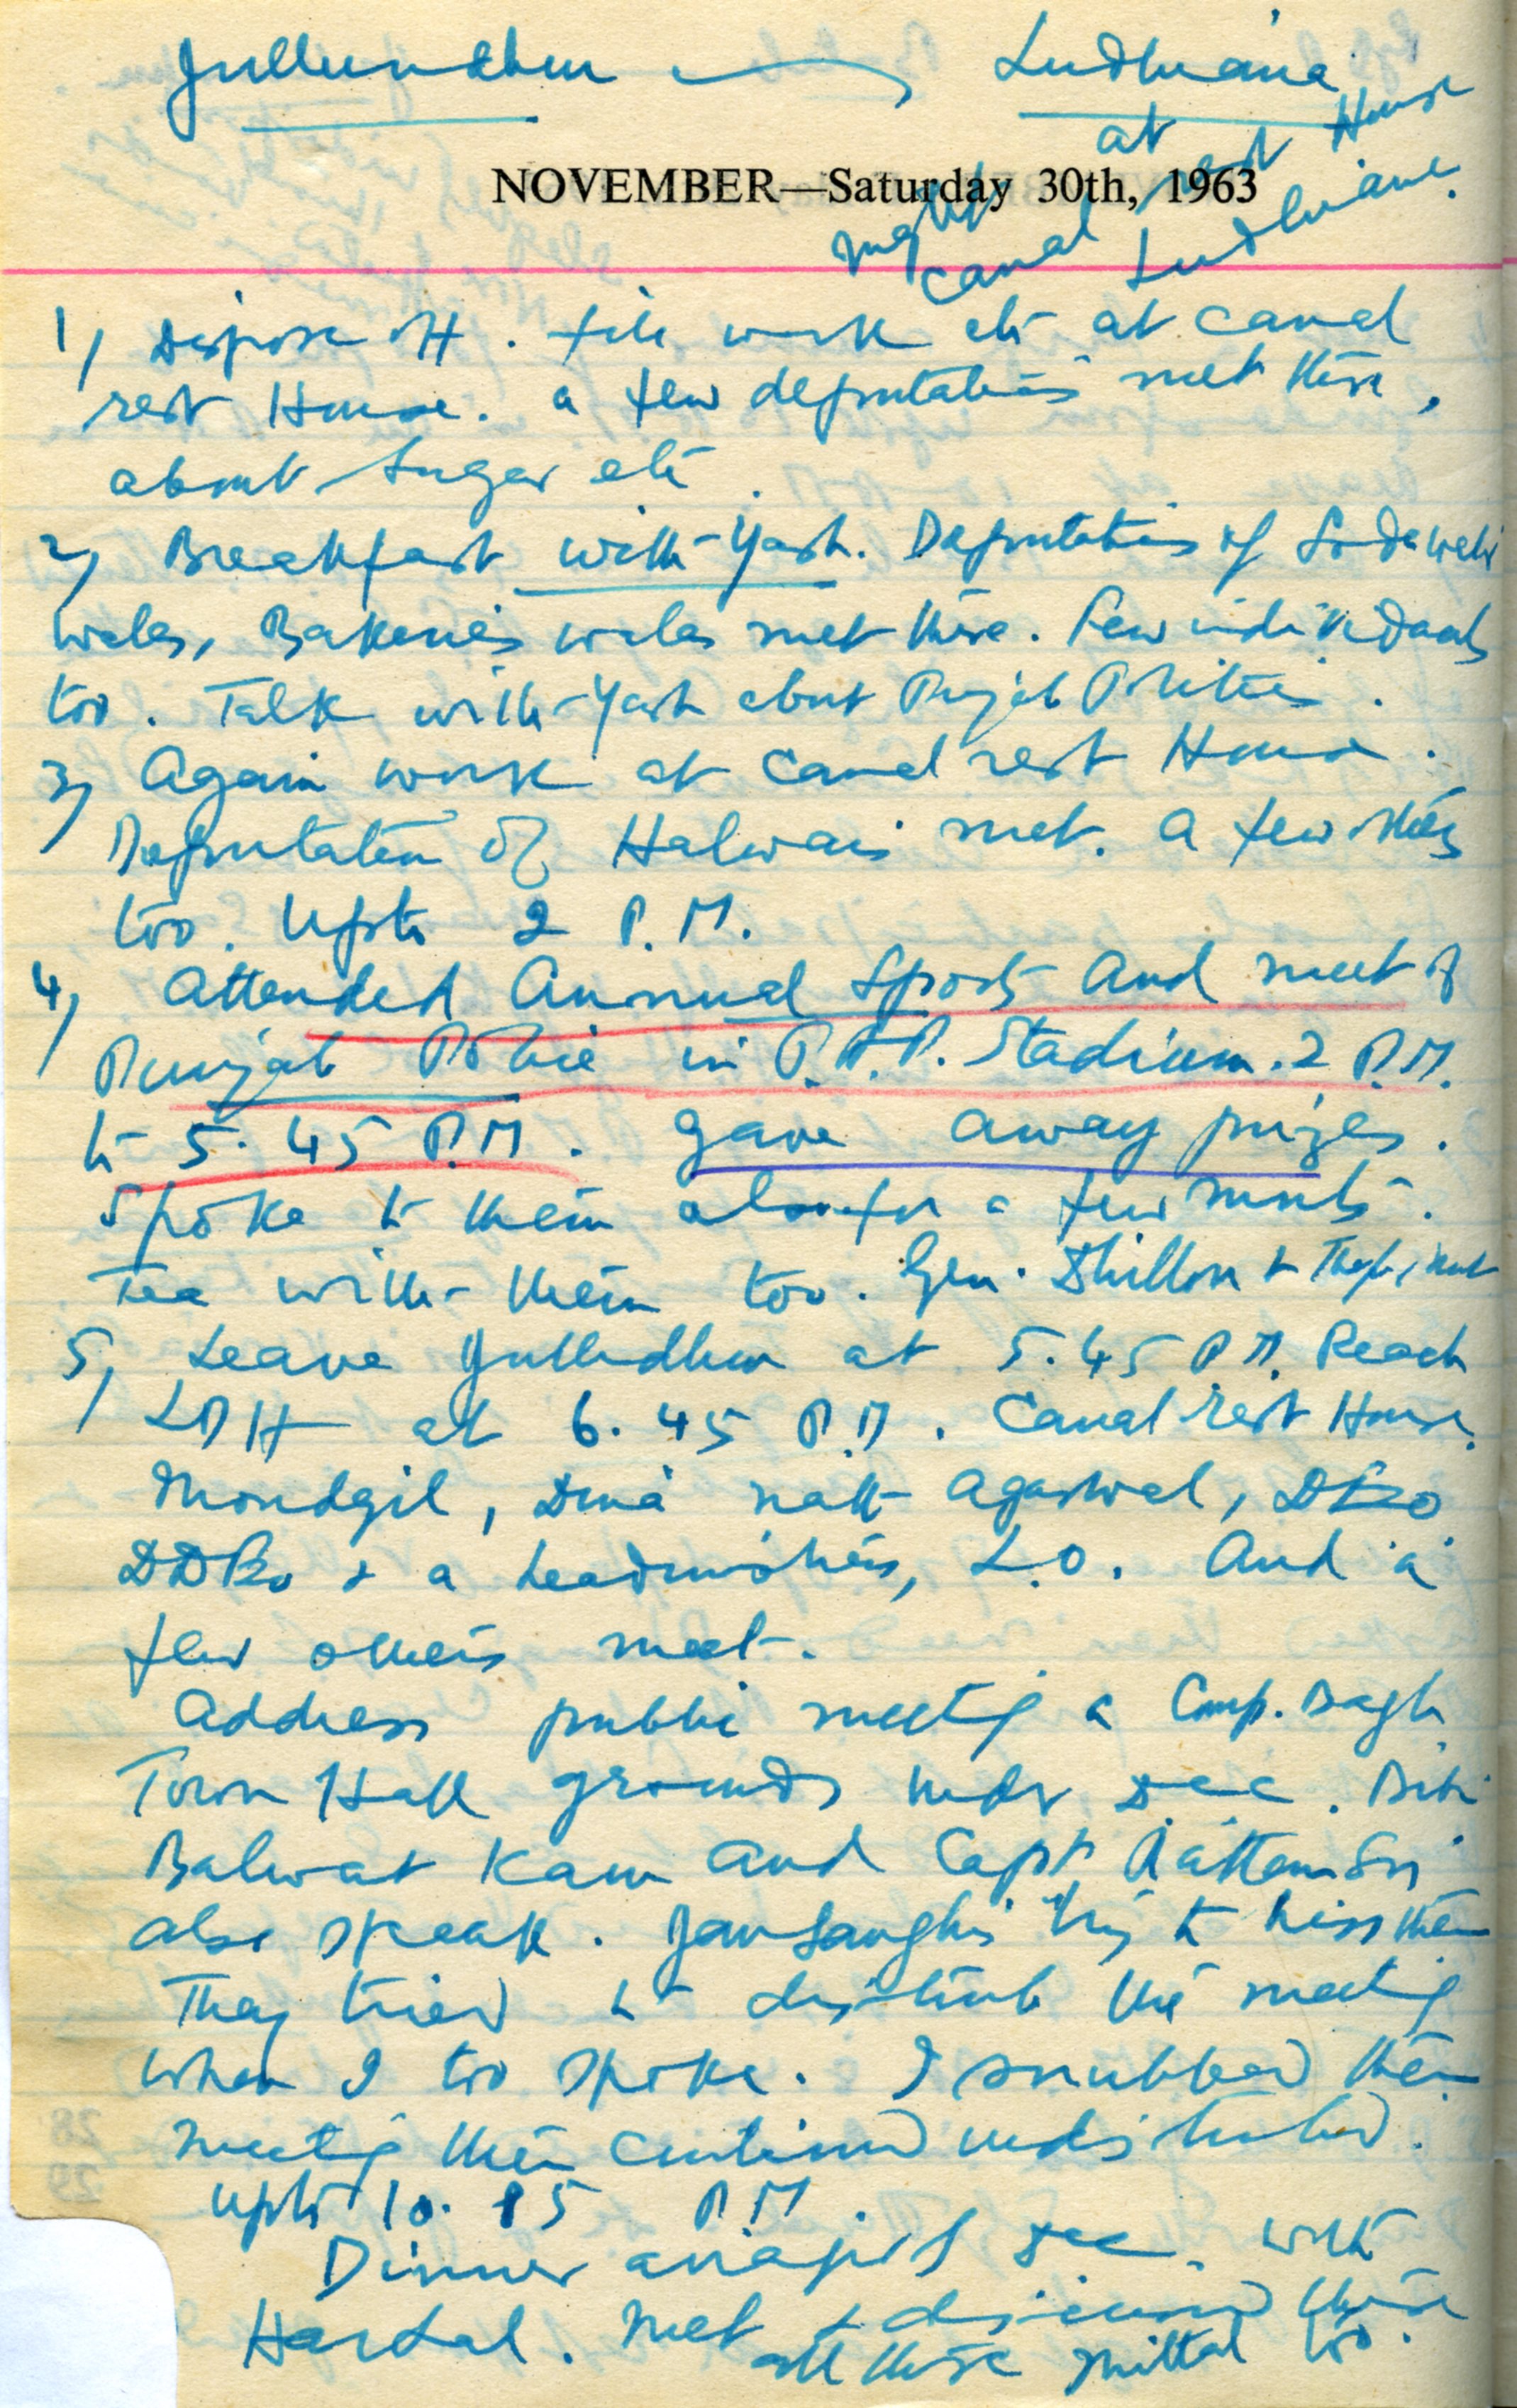 Jullundhur Ludhiana
at
NOVEMBER—Saturday 30th, 1963
night canal rest House
Ludhiana.
1) Dispose off. file work etc at canal
rest House. a few deputations met there,
about Sugar etc.
2) Breakfast with Yash. Deputations of Soda water
walas, Bakeries walas met there. Few individuals
too. Talk with Yash about Punjab Politics.
3) Again work at Canal rest House.
Deputation of Halwais met. a few others
too. Upto 2 P.M.
4) Attended Annual Sports And meet of
Punjab Police in P.A.P. Stadium. 2 P.M.
to 5.45 P.M. gave away prizes.
Spoke to them also for a few mnts.
Tea with them too. Gen. Dhillon &
5) Leave Jullundhur at 5.45 P.M. Reach
LDH at 6.45 P.M. Canal rest House.
Mondgil, Dina nath Agarwal,
& a headmistress, L.O. And a
few others meet.
Address public meeting a Comp. Bagh
Town Hall grounds under DCC. Bibi
Balwat Kaur and Capt Rattan Sn
also speak. JanSanghis try to hiss them
They tried to disturb the meeting
when I too spoke. I snubbed them
meeting then continued undisturbed.
upto 10.15 P.M.
Dinner DCC. with
Harbal. Met & discussed there
all there Mittal too.